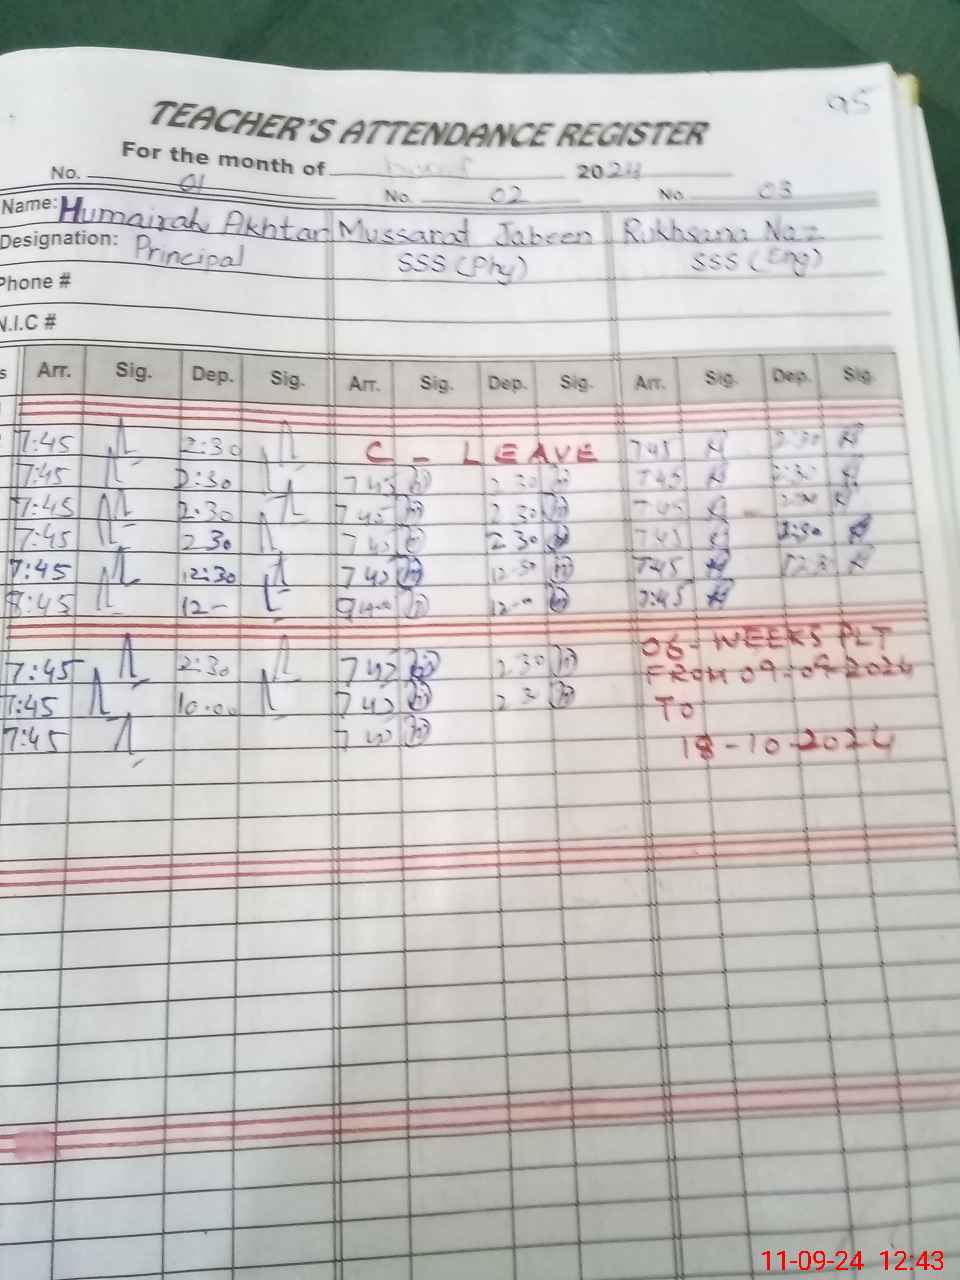 95
TEACHER'S ATTENDANCE REGISTER
For the month of 2024
No. 01 No. 02 No. 03
Name: Humairah Akhtar Mussarat Jabeen Rukhsana Naz
Designation: Principal SSS (Phy) SSS (Eng)
Phone #
N.I.C #
s Arr. Sig. Dep. Sig. Arr. Sig. Dep. Sig. Arr. Sig. Dep. Sig.
7:45 2:30 C - LEAVE 745 2:30
7:45 2:30 745 2 30 745 2:30
7:45 2:30 745 2 30 7:45
7:45 2 30 745 2 30 745 2:30
7:45 12:30 745 12 30 745 12 30
8:45 12- 12- 7:45
7:45 2:30 745 2 30 06-WEEKS PLT
FROM 09-09-2024
7:45 10:00 745 2 3 TO
7:45 18-10-2024
11-09-24 12:43